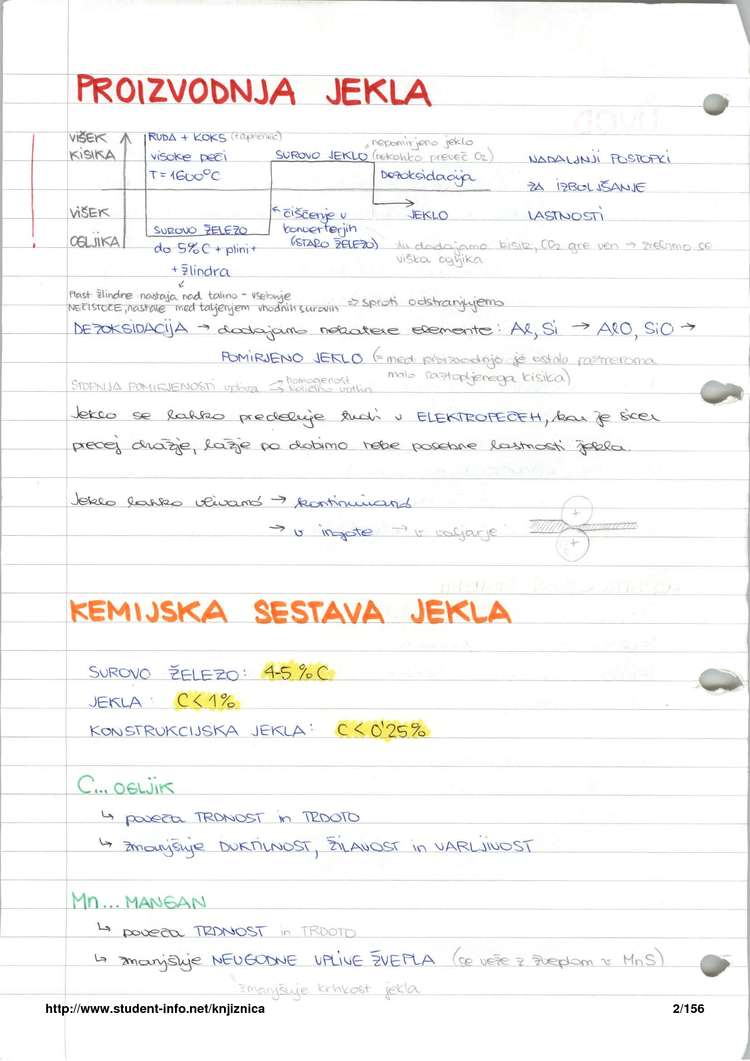 PROIZVODNJA JEKLA
VIŠEK KISIKA
RUDA + KOKS (taprenec)
visoke peči
T = 1600°C
SUROVO JEKLO
nepomirjeno jeklo
(nekoliko preveč O₂)
Dezoksidacija
NADALJNJI POSTOPKI
ZA IZBOLJŠANJE
LASTNOSTI
VIŠEK OGLJIKA
SUROVO ŽELEZO
do 5% C + plini +
+ žlindra
čiščenje v
konverterjih
(STARO ŽELEZO)
JEKLO
tu dodajamo kisik, CO₂ gre ven → znebimo se
viška ogljika
Plast žlindre nastaja nad talino - vsebuje
NEČISTOČE, nastale med taljenjem vhodnih surovin ⇒ sproti odstranjujemo
DEZOKSIDACIJA → dodajamo nekatere elemente: Al, Si → AlO, SiO →
POMIRJENO JEKLO (= med proizvodnjo je ostalo razmeroma
malo raztopljenega kisika)
STOPNJA POMIRJENOSTI vpliva → homogenost
→ količino votlin
Jeklo se lahko predeluje tudi v ELEKTROPEČEH, kar je sicer
precej dražje, lažje pa dobimo neke posebne lastnosti jekla.
Jeklo lahko vlivamo → kontinuirano
→ v ingote → v valjarje
KEMIJSKA SESTAVA JEKLA
SUROVO ŽELEZO: 4-5 % C
JEKLA: C < 1%
KONSTRUKCIJSKA JEKLA: C < 0'25%
C... OGLJIK
↳ poveča TRDNOST in TRDOTO
↳ zmanjšuje DUKTILNOST, ŽILAVOST in VARLJIVOST
Mn... MANGAN
↳ poveča TRDNOST in TRDOTO
↳ zmanjšuje NEUGODNE VPLIVE ŽVEPLA (se veže z žveplom v MnS)
zmanjšuje krhkost jekla
http://www.student-info.net/knjiznica
2/156